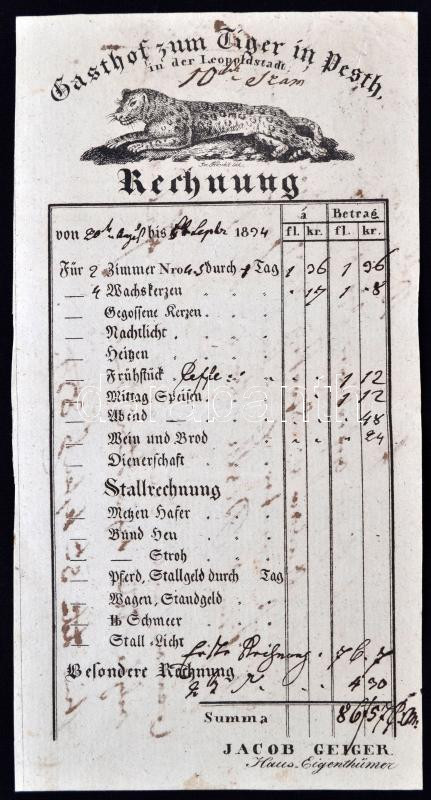 Gasthof zum Tiger in Pesth,
in der Leopoldstadt.
10
Rechnung
á Betrag
von bis 1834 fl. kr. fl. kr.
Für 2 Zimmer Nro 4.5 durch 1 Tag 1 36 1 36
4 Wachskerzen " " 17 1 8
Gegossene Kerzen
Nachtlicht
Heitzen
Frühstück 1 12
Mittag Speisen 1 12
Abend — 48
Wein und Brod 24
Dienerschaft
Stallrechnung
Metzen Hafer
Bund Heu
— Stroh
Pferd, Stallgeld durch Tag
Wagen, Standgeld
℔ Schmeer
Stall-Licht
Besondere Rechnung
4 30
Summa 86 57
JACOB GEIGER.
Haus-Eigenthümer